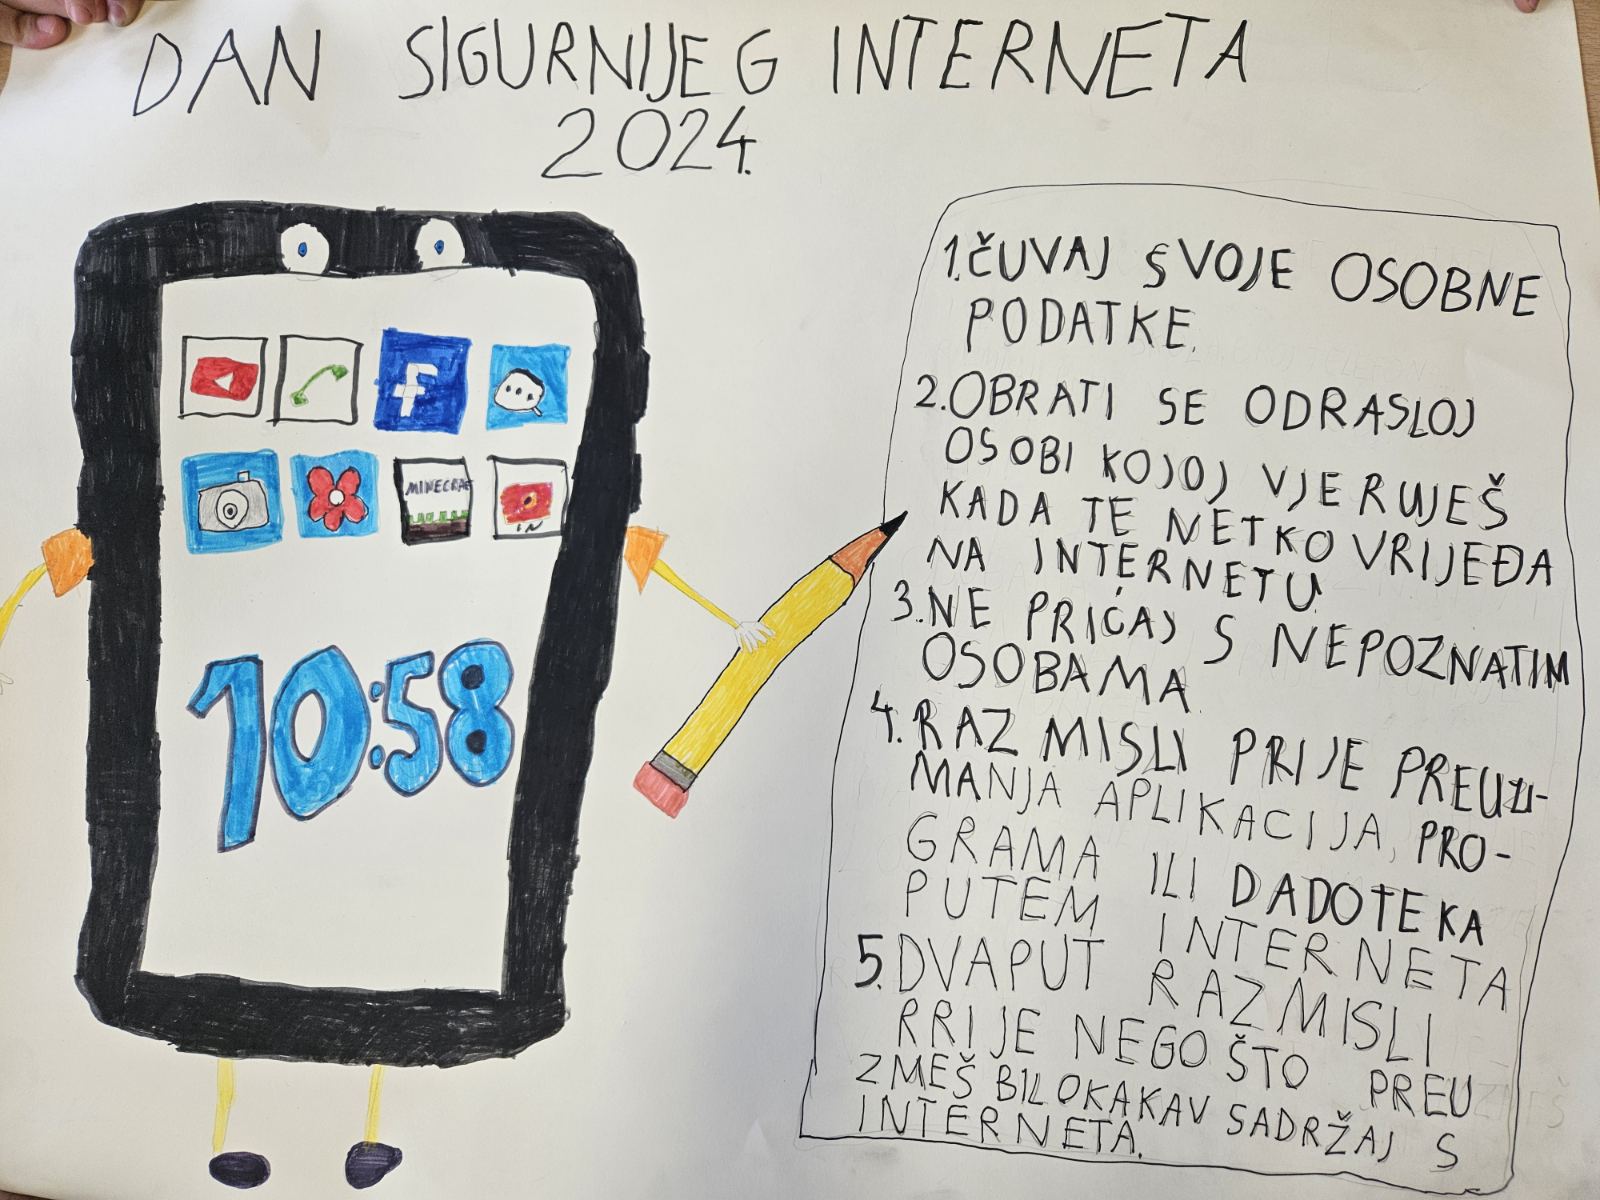 DAN SIGURNIJEG INTERNETA
2024.
MINECRAF
IN
10:58
1. ČUVAJ SVOJE OSOBNE
PODATKE.
2. OBRATI SE ODRASLOJ
OSOBI KOJOJ VJERUJEŠ
KADA TE NETKO VRIJEĐA
NA INTERNETU.
3. NE PRIČAJ S NEPOZNATIM
OSOBAMA
4. RAZMISLI PRIJE PREUZI-
MANJA APLIKACIJA, PRO-
GRAMA ILI DADOTEKA
PUTEM INTERNETA
5. DVAPUT RAZMISLI
RRIJE NEGO ŠTO PREU
ZMEŠ BILOKAKAV SADRŽAJ S
INTERNETA.